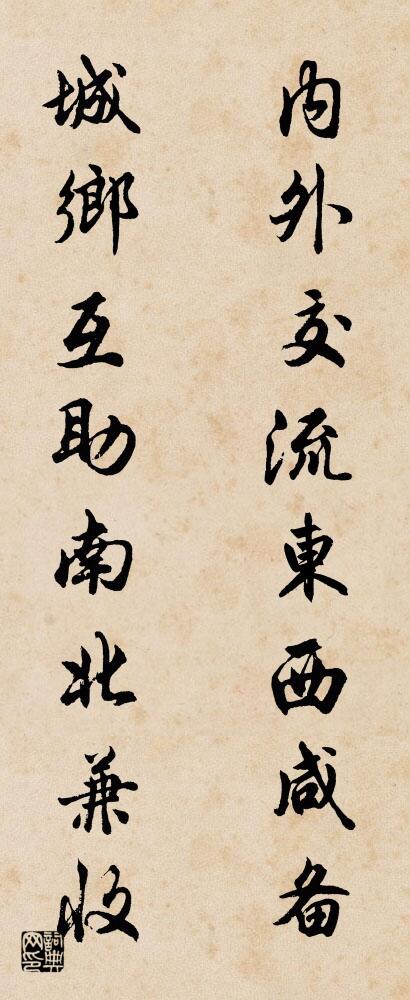 内外交流東西咸备
城鄉互助南北兼收
詞典网印